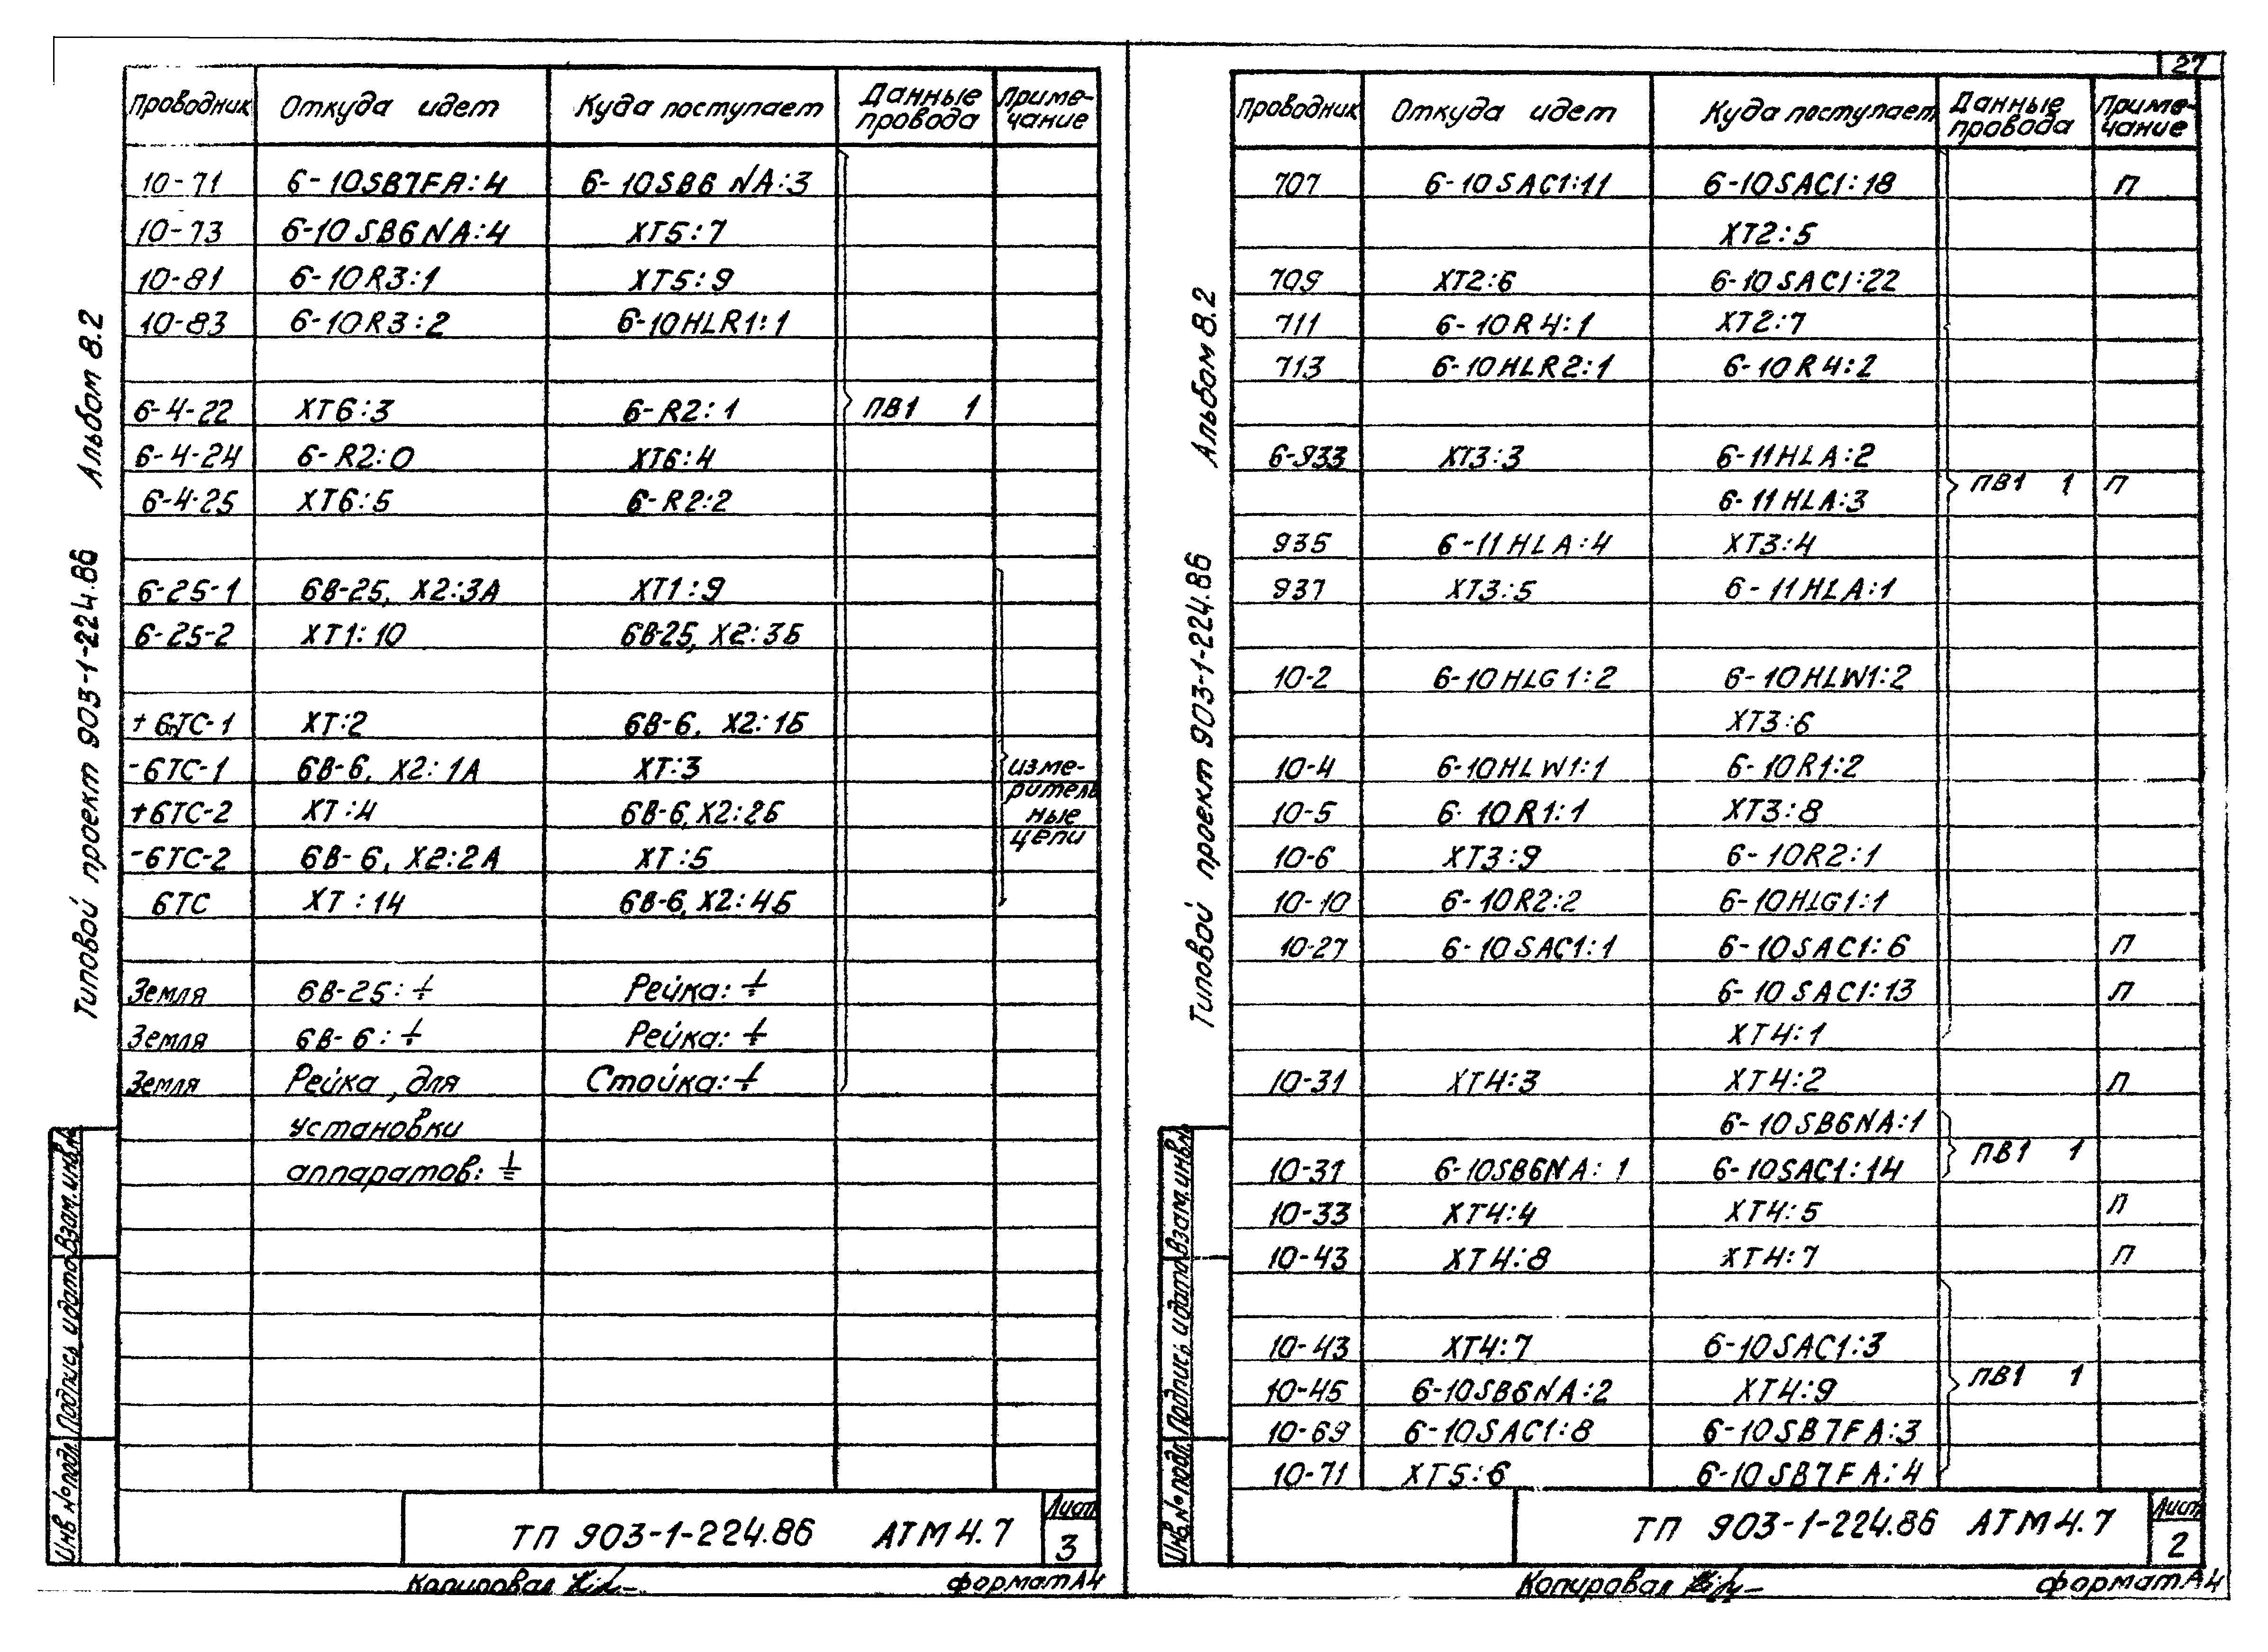 Проводник Откуда идет Куда поступает Данные провода Приме-чание
10-71 6-10SB7FA:4 6-10SB6NA:3
10-73 6-10SB6NA:4 XT5:7
10-81 6-10R3:1 XT5:9
10-83 6-10R3:2 6-10HLR1:1
6-4-22 XT6:3 6-R2:1 ПВ1 1
6-4-24 6-R2:0 XT6:4
6-4-25 XT6:5 6-R2:2
6-25-1 6В-25, X2:3А XT1:9
6-25-2 XT1:10 6В-25, X2:3Б
+6ТС-1 XT:2 6В-6, X2:1Б
-6ТС-1 6В-6, X2:1А XT:3 изме-
ритель
+6ТС-2 XT:4 6В-6, X2:2Б ные
цепи
-6ТС-2 6В-6, X2:2А XT:5
6ТС XT:14 6В-6, X2:4Б
Земля 6В-25:⏚ Рейка:⏚
Земля 6В-6:⏚ Рейка:⏚
Земля Рейка, для Стойка:⏚
установки
аппаратов:⏚
ТП 903-1-224.86 АТМ4.7 Лист 3
Копировал
формат А4
Типовой проект 903-1-224.86 Альбом 8.2
Инв.№подл. Подпись и дата Взам.инв.№
27
Проводник Откуда идет Куда поступает Данные провода Приме-чание
707 6-10SAC1:11 6-10SAC1:18 П
XT2:5
709 XT2:6 6-10SAC1:22
711 6-10R4:1 XT2:7
713 6-10HLR2:1 6-10R4:2
6-933 XT3:3 6-11HLA:2
6-11HLA:3 ПВ1 1 П
935 6-11HLA:4 XT3:4
937 XT3:5 6-11HLA:1
10-2 6-10HLG1:2 6-10HLW1:2
XT3:6
10-4 6-10HLW1:1 6-10R1:2
10-5 6-10R1:1 XT3:8
10-6 XT3:9 6-10R2:1
10-10 6-10R2:2 6-10HLG1:1
10-27 6-10SAC1:1 6-10SAC1:6 П
6-10SAC1:13 П
XT4:1
10-31 XT4:3 XT4:2 П
6-10SB6NA:1
10-31 6-10SB6NA:1 6-10SAC1:14 ПВ1 1
10-33 XT4:4 XT4:5 П
10-43 XT4:8 XT4:7 П
10-43 XT4:7 6-10SAC1:3
10-45 6-10SB6NA:2 XT4:9 ПВ1 1
10-69 6-10SAC1:8 6-10SB7FA:3
10-71 XT5:6 6-10SB7FA:4
ТП 903-1-224.86 АТМ4.7 Лист 2
Копировал
формат А4
Типовой проект 903-1-224.86 Альбом 8.2
Инв.№подл. Подпись и дата Взам.инв.№